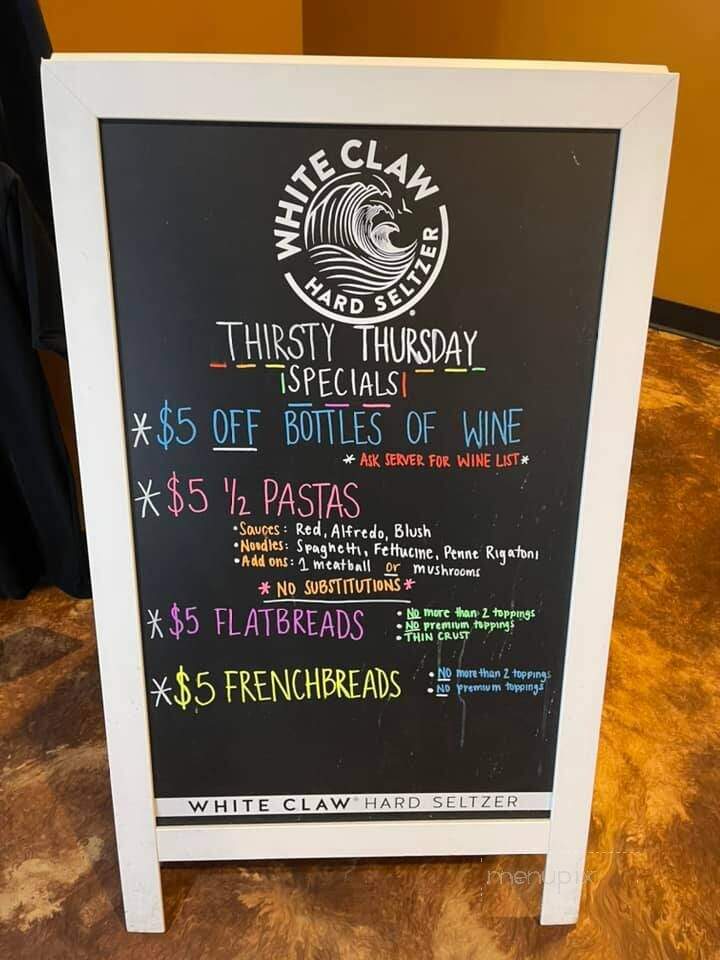 WHITE CLAW
HARD SELTZER
THIRSTY THURSDAY
SPECIALS
* $5 OFF BOTTLES OF WINE
* ASK SERVER FOR WINE LIST *
* $5 1/2 PASTAS
• Sauces: Red, Alfredo, Blush
• Noodles: Spaghetti, Fettucine, Penne Rigatoni
• Add ons: 1 meatball or mushrooms
* NO SUBSTITUTIONS *
* $5 FLATBREADS
• NO more than 2 toppings
• NO premium toppings
• THIN CRUST
* $5 FRENCHBREADS
• NO more than 2 toppings
• NO premium toppings
WHITE CLAW® HARD SELTZER
menupix